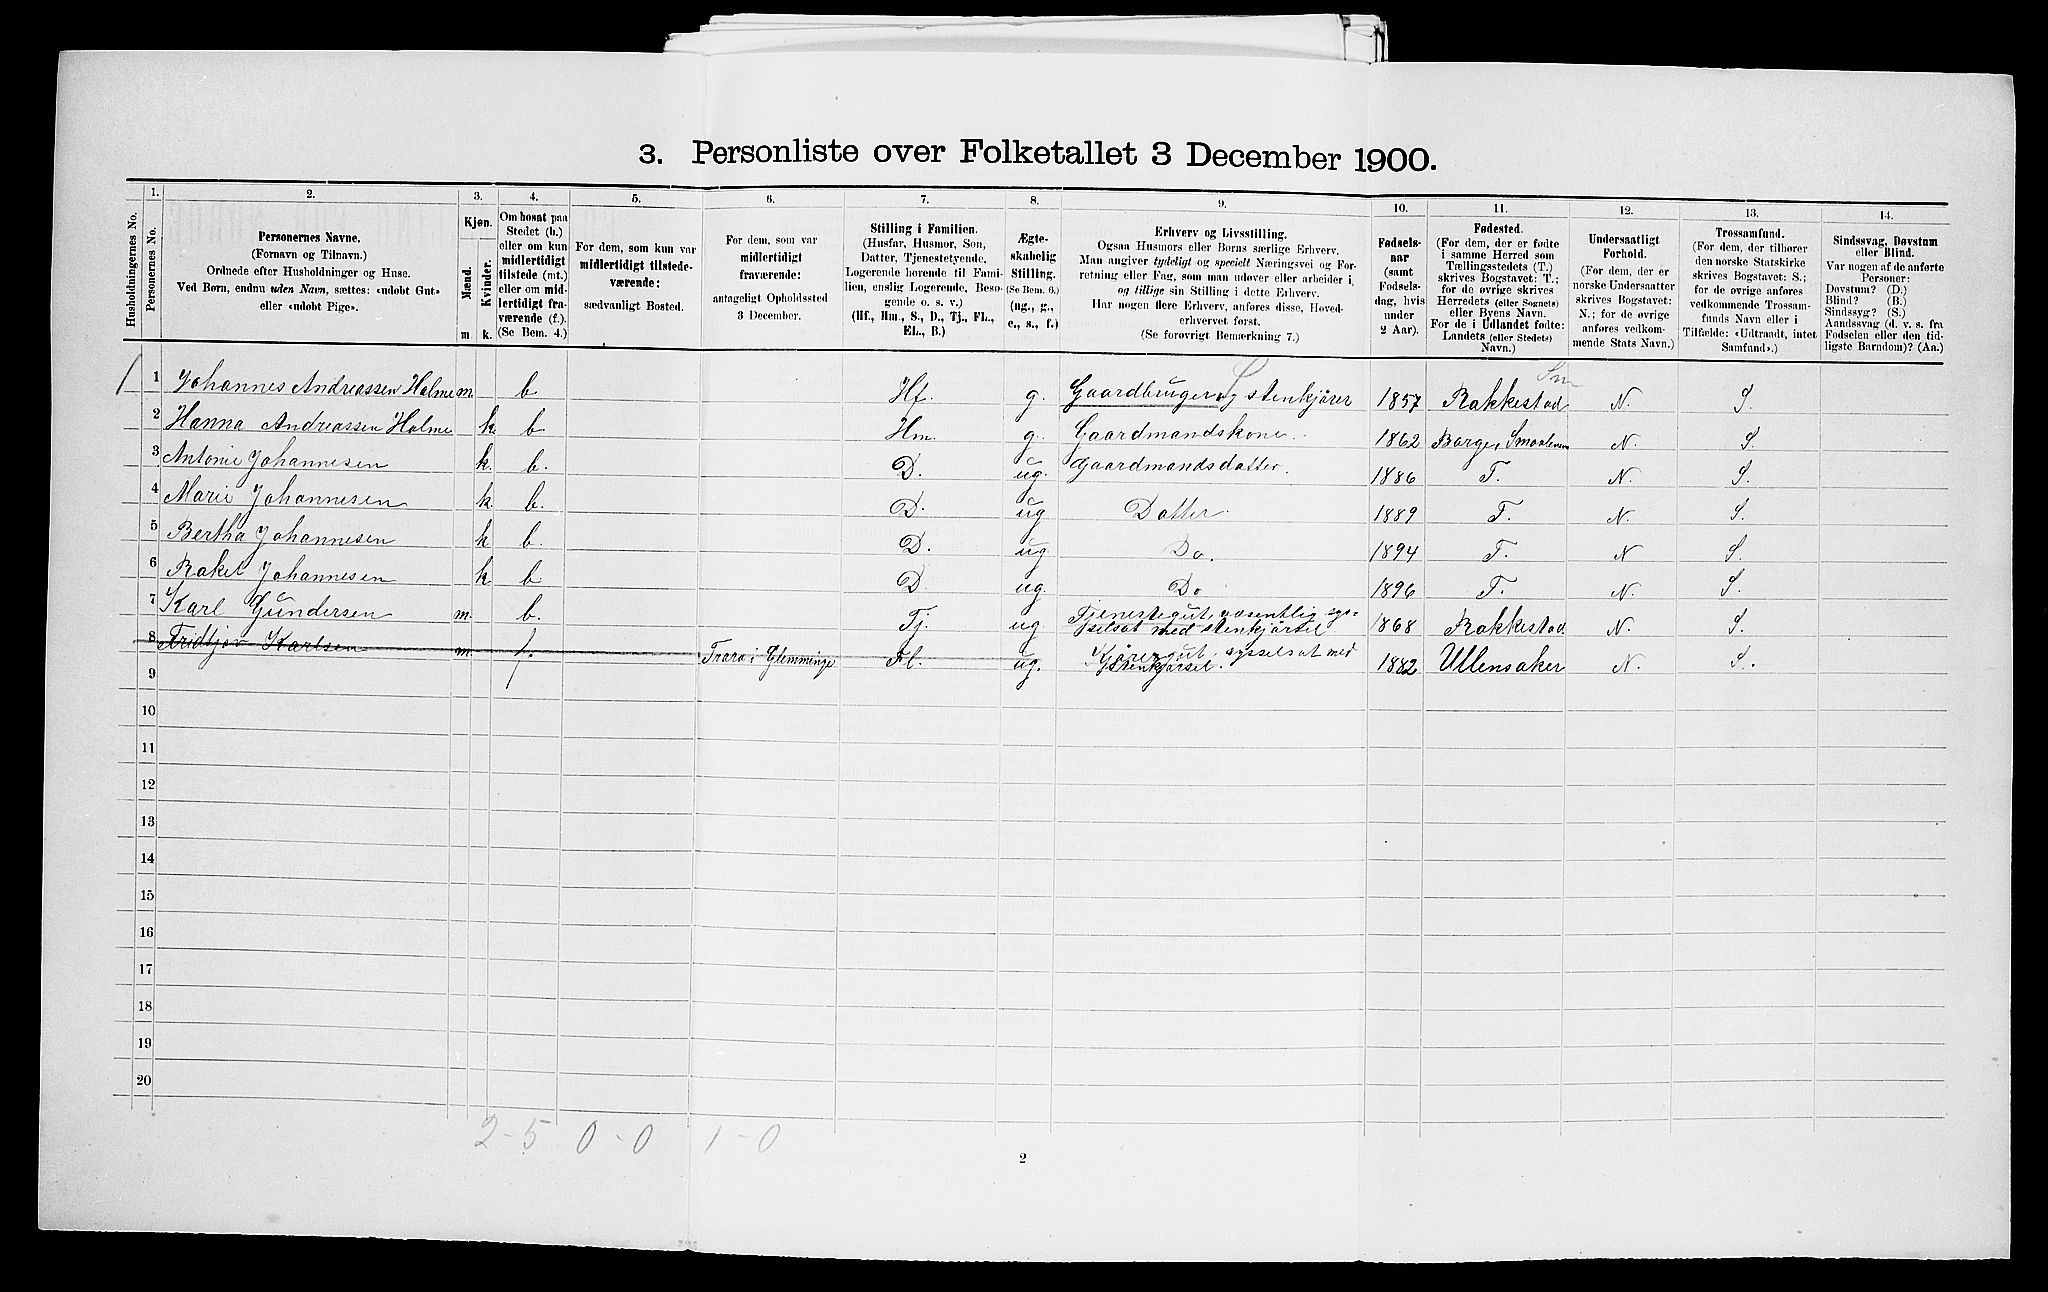 3. Personliste over Folketallet 3 December 1900.
Husholdningernes No.
1.
Personernes No.
2.
Personernes Navne.
(Fornavn og Tilnavn.)
Ordnede efter Husholdninger og Huse.
Ved Børn, endnu uden Navn, sættes: «udøbt Gut»
eller «udøbt Pige».
3.
Kjøn.
Mænd.
Kvinder.
m.
k.
4.
Om bosat paa
Stedet (b.)
eller om kun
midlertidigt
tilstede (mt.)
eller om mid-
lertidigt fra-
værende (f.).
(Se Bem. 4.)
5.
For dem, som kun var
midlertidigt tilstede-
værende:
sædvanligt Bosted.
6.
For dem, som var
midlertidigt
fraværende:
antageligt Opholdssted
3 December.
7.
Stilling i Familien.
(Husfar, Husmor, Søn,
Datter, Tjenestetyende,
Logerende hørende til Fami-
lien, enslig Logerende, Besø-
gende o. s. v.)
(Hf., Hm., S., D., Tj., FL.,
EL., B.)
8.
Ægte-
skabelig
Stilling.
(Se Bem. 6.)
(ug., g.,
e., s., f.)
9.
Erhverv og Livsstilling.
Ogsaa Husmors eller Børns særlige Erhverv.
Man angiver tydeligt og specielt Næringsvei og For-
retning eller Fag, som man udøver eller arbeider i,
og tillige sin Stilling i dette Erhverv.
Har nogen flere Erhverv, anføres disse, Hoved-
erhvervet først.
(Se forøvrigt Bemærkning 7.)
10.
Fødsels-
aar
(samt
Fødsels-
dag, hvis
under
2 Aar).
11.
Fødested.
(For dem, der er fødte
i samme Herred som
Tællingsstedets (T.)
skrives Bogstavet: T.;
for de øvrige skrives
Herredets (eller Sognets)
eller Byens Navn.
For de i Udlandet fødte:
Landets (eller Stedets)
Navn.)
12.
Undersaatligt
Forhold.
(For dem, der er
norske Undersaatter
skrives Bogstavet:
N.; for de øvrige
anføres vedkom-
mende Stats Navn.)
13.
Trossamfund.
(For dem, der tilhører
den norske Statskirke
skrives Bogstavet: S.;
for de øvrige anføres
vedkommende Trossam-
funds Navn eller i
Tilfælde: «Udtraadt, intet
Samfund».)
14.
Sindssvag, Døvstum
eller Blind.
Var nogen af de anførte
Personer:
Døvstum? (D.)
Blind? (B.)
Sindssyg? (S.)
Aandssvag (d. v. s. fra
Fødselen eller den tid-
ligste Barndom)? (Aa.)
Sm
1 1 Johannes Andreassen Holme m. b Hf. g. Gaardbruger og stenkjører 1857 Rakkestad N. S.
2 Hanna Andreassen Holme k. b. Hm. g. Gaardmandskone. 1862 Borge, Smaalenene N. S.
3 Antonie Johannesen k. b. D. ug. Gaardmandsdatter. 1886 T. N. S.
4 Marie Johannesen k. b. D. ug Datter. 1889 T. N. S.
5 Bertha Johannesen k b. D. ug Do. 1894 T. N S.
6 Rakel Johannesen k b D. ug. Do 1896 T. N. S.
7 Karl Gundersen m. b. Tj. ug Tjenestegut, væsentlig sys-
selsat med stenkjørsel 1868 Rakkestad. N. S.
8 Fridtjov Karlsen m. f. Trara i Glemminge Fl. ug. Kjøregut, sysselsat med
Stenkjørsel. 1882 Ullensaker N. S.
9
10
11
12
13
14
15
16
17
18
19
20
2-5 0-0 1-0
2